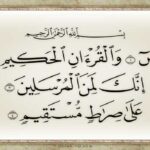 بِسْمِ ٱللَّهِ ٱلرَّحْمَٰنِ ٱلرَّحِيمِ
يسٓ ۝ وَٱلْقُرْءَانِ ٱلْحَكِيمِ ۝
إِنَّكَ لَمِنَ ٱلْمُرْسَلِينَ ۝
عَلَىٰ صِرَٰطٍ مُّسْتَقِيمٍ ۝